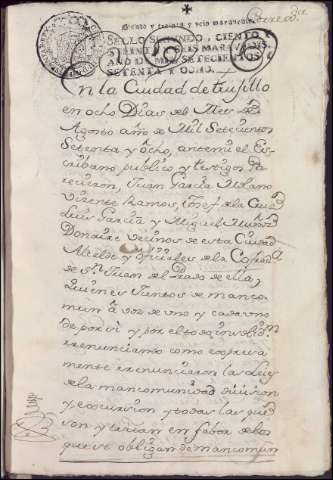 Ciento y treinta y seis maravedis.
SELLO SEGUNDO, CIENTO
Y TREINTA Y SEIS MARAVEDIS,
AÑO DE MIL SETECIENTOS
SETENTA Y OCHO.
En la Ciudad de truxillo
en ocho Dias del Mes de
Agosto año de Mil Setecientos
Setenta y ocho, antemi el Es-
cribano publico y testigos Pa-
recieron, Juan Garcia
Vicente Ramos,
Luis Garcia y Miguel
Donaire vecinos de esta Ciudad
Alcalde y oficiales de la Cofrad.
de Sn. Juan del de ella,
Quienes Juntos de manco-
mun a voz de uno y cada uno
de por si y por el todo insolidum
renunciando como expresa-
mente renunciaron las leyes
de la mancomunidad division
y escursion y todas las que
son y tratan en fabor de los
que se obligan de mancomun